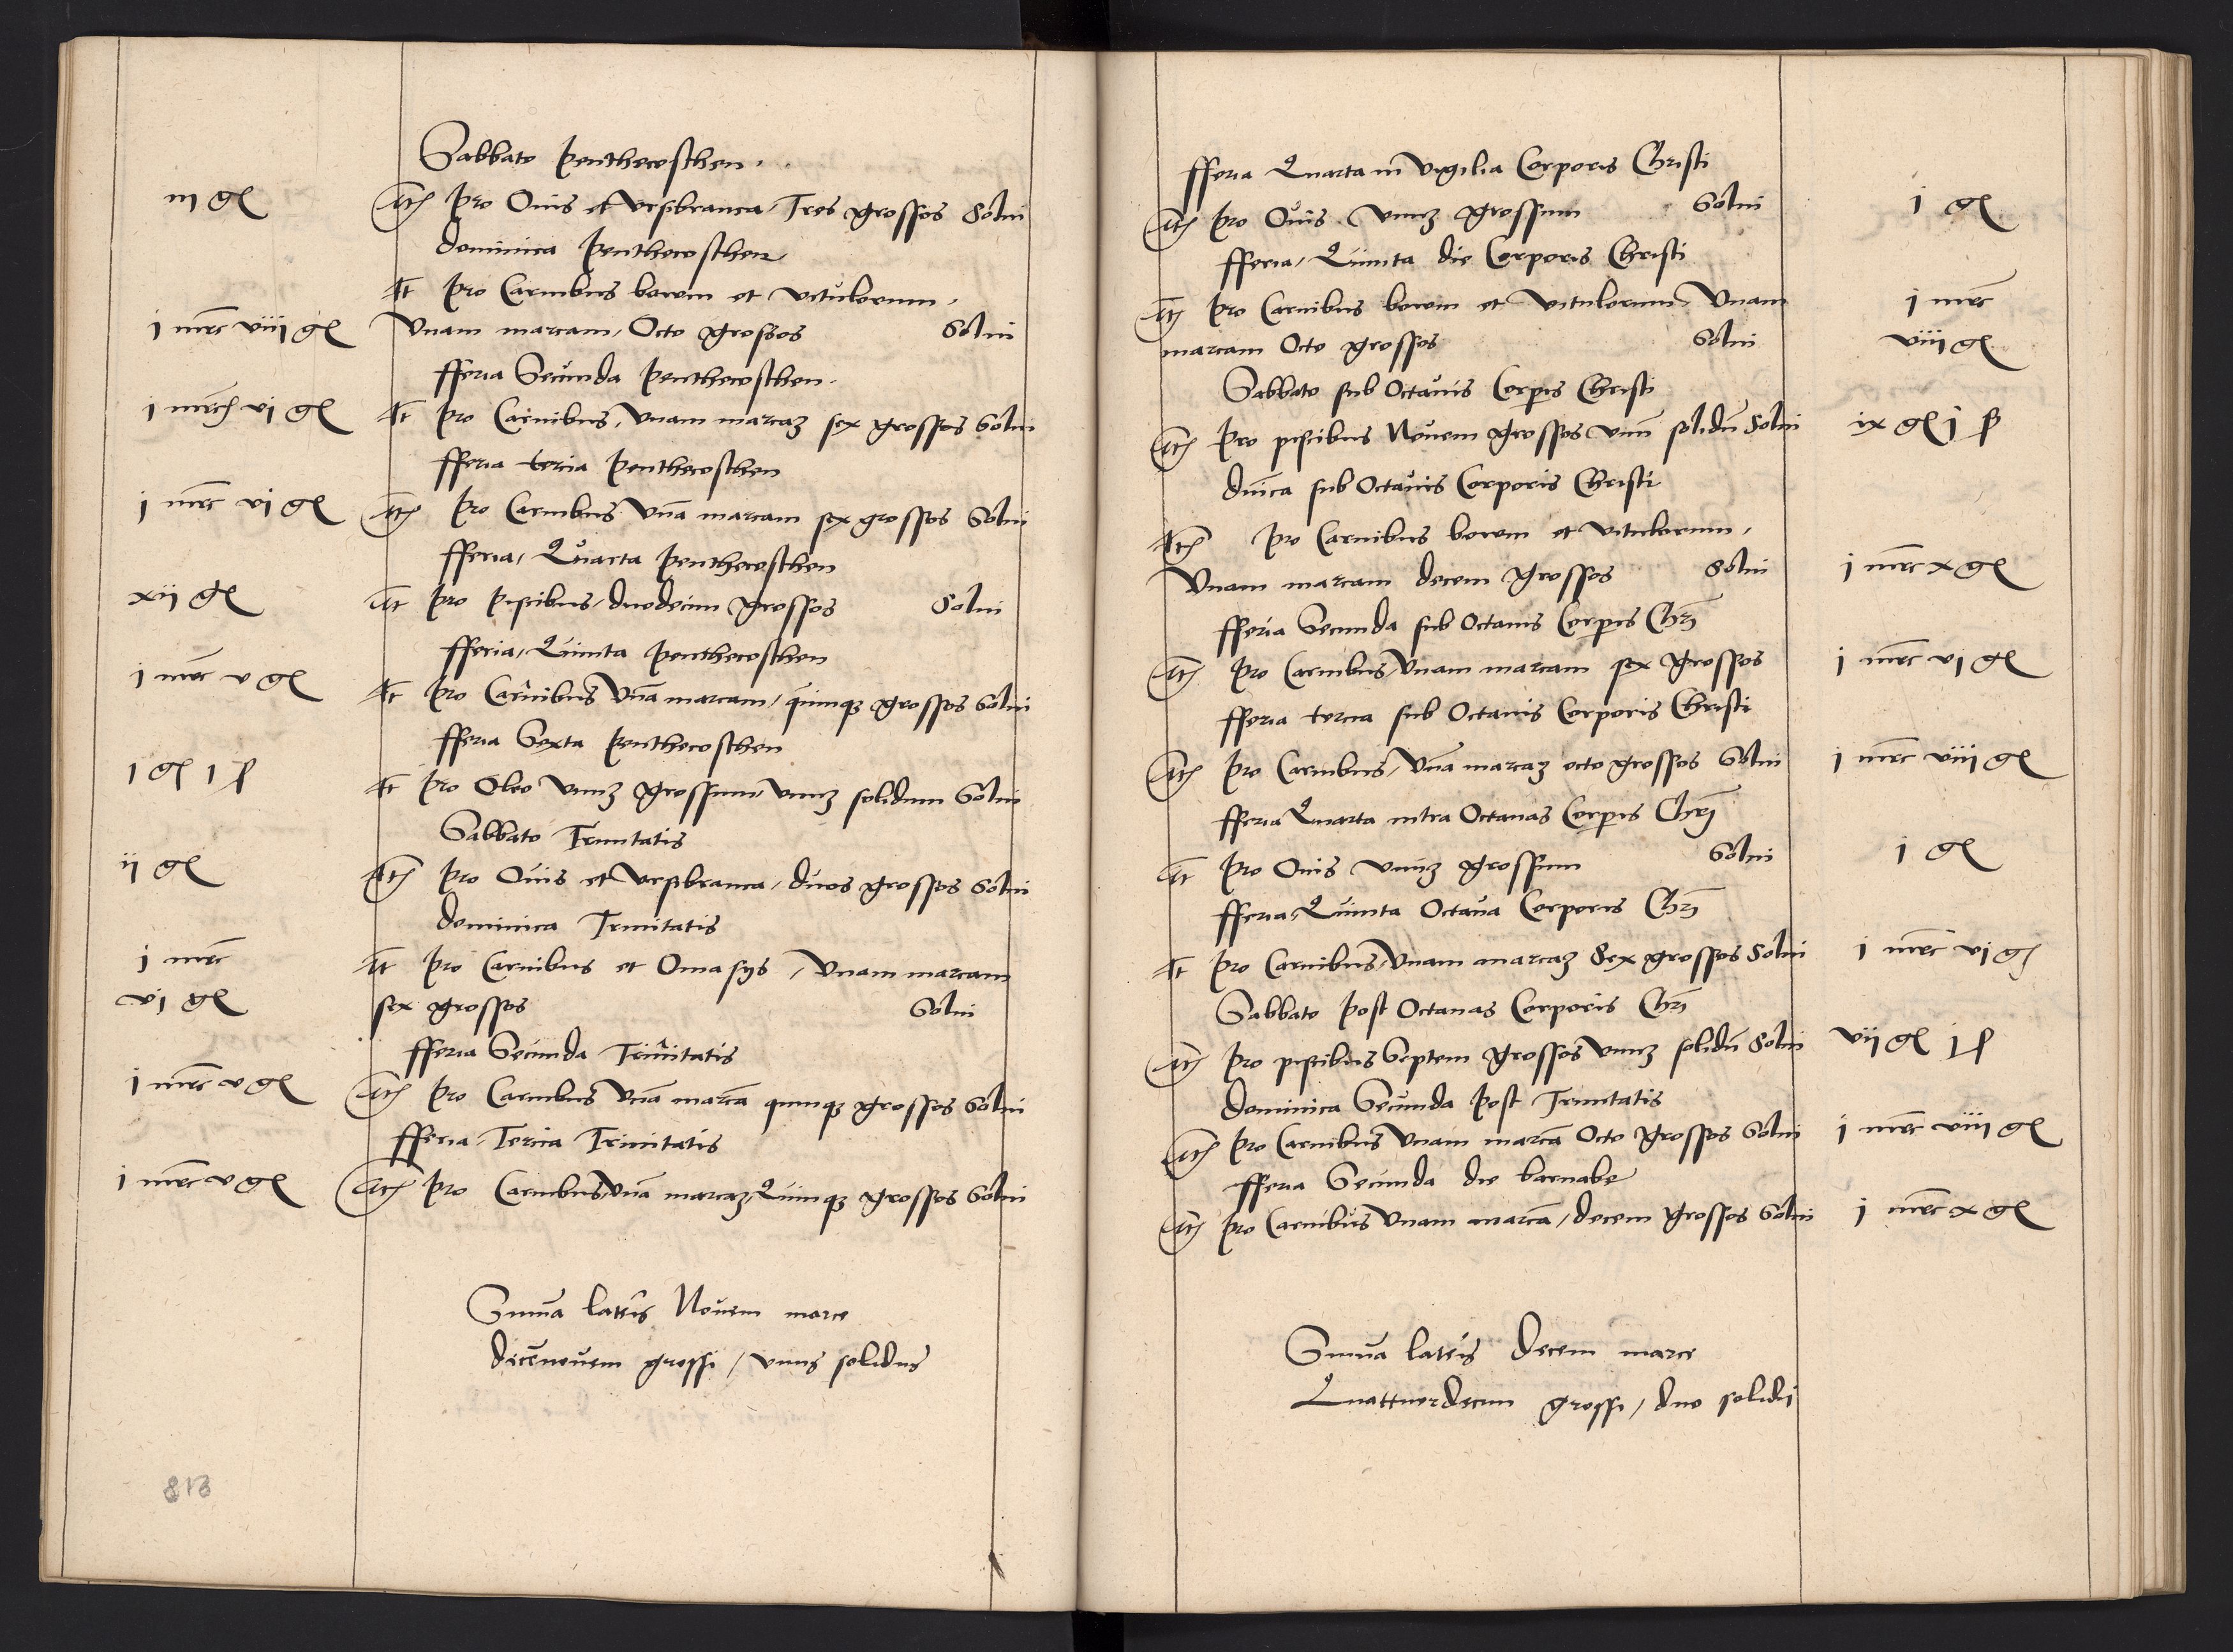 Sabbato Penthecosthen.
iij gl Itē pro Ovis et vrsibranca / Tres grossos Solui
dominica Penthecosthen
It pro Carnibus bovem et vitulorum.
j mrc viij gl Vnam marcam, Octo grossos Solui
fferia Secunda Penthecosthen.
j mrc vj gl It pro Carnibus, vnam marcaʒ sex grossos Solui
fferia tercia Penthecosthen
j mrc vj gl Itē pro Carnibus vnā marcam sex grossos Solui
fferia, Quarta Penthecosthen
xij gl It pro piscibus, duodecim grossos Solui
fferia, Quinta Penthecosthen
j mrc v gl It pro Carnibus vnā marcam, quinqʒ grossos Solui
fferia Sexta Penthecosthen
1 gl 1 ß It pro Oleo vnuʒ grossum, vnuʒ solidum Solui
Sabbato Trinitatis
ij gl Itē pro Ovis et vrsibranca, duos grossos Solui
dominica Trinitatis
j mrc It pro Carnibus et Omasijs, vnam marcam
vj gl sex grossos Solui
fferia Secunda Trinitatis
j mrc v gl Itē pro Carnibus vnā marcā quinqʒ grossos Solui
fferia Tercia Trinitatis
j mrc v gl Itē pro Carnibus, vnā marcaʒ, Quinqʒ grossos Solui
Summa lateris Novem marce
decēnovem grossi / vnus solidus
813
fferia Quarta in vigilia Corporis Christi
Itē pro Ovis vnuʒ grossum Solui j gl
fferia, Quinta die Corporis Christi
Itē pro Carnibus bovem et vitulorum, Vnam j mrc
marcam Octo grossos Solui viij gl
Sabbato sub Octavis Corpis Christi
Itē pro piscibus Novem grossos vnū solidū Solui ix gl j ß
dnica sub Octavis Corporis Christi
Itē pro Carnibus bovem et vitulorum,
Vnam marcam decem grossos Solui j mrc x gl
fferia Secunda sub Octavis Corpis Chri
Itē pro Carnibus, vnam marcam sex grossos j mrc vj gl
fferia tercia sub Octavis Corporis Christi
Itē pro Carnibus, vnā marcaʒ octo grossos Solui j mrc viij gl
fferia Quarta intra Octavas Corpis Chri
It pro Ovis vnuʒ grossum Solui j gl
fferia, Quinta Octava Corporis Chri
It pro Carnibus, vnam marcaʒ Sex grossos Solui j mrc vj gl
Sabbato post Octavas Corporis Chri
Itē pro piscibus Septem grossos vnuʒ solidū Solui vij gl j ß
Dominica Secunda post Trinitatis
Itē pro Carnibus vnam marcā Octo grossos Solui j mrc viij gl
fferia Secunda die barnabe
Itē pro Carnibus vnam marcā, decem grossos Solui j mrc x gl
Summa lateris Decem marce
Quattuordecim grossi, duo solidi